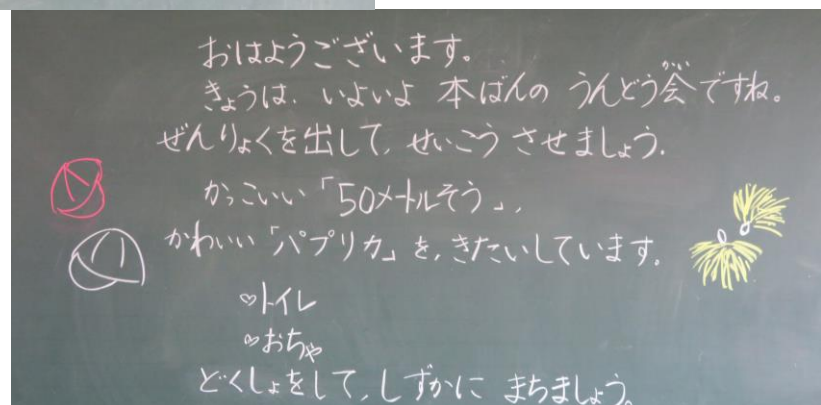 おはようございます。
きょうは、いよいよ 本ばんの うんどう会ですね。
かい
ぜんりょくを出して、せいこう させましょう。
かっこいい「50メートルそう」、
かわいい「パプリカ」を、きたいしています。
♡トイレ
♡おちゃ
どくしょをして、しずかに まちましょう。